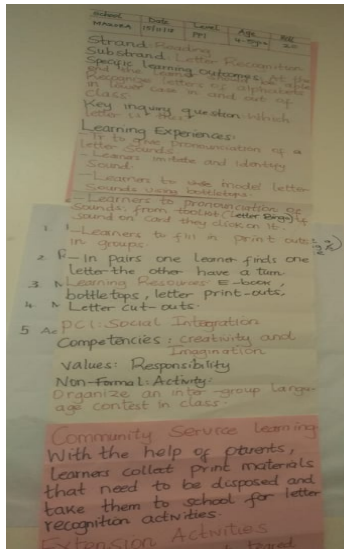 School Date Level Age Roll
MAKUKA PP1 20
Strand: Reading
Substrand: Letter Recognition
Specific learning outcomes: At the
end the learner be able
Recognize letters of alphabets
in lower case in and out of
class.
Key inquiry question: Which
letter is this?
Learning Experiences:
- Tr to give pronunciation of a
letter Sounds.
- Learners imitate and identify
Sound.
- Learners to model letter
Sounds using bottletops.
- Learners to pronunciation of
Sounds: from toolkit (Letter Bingo)
sound on card they click on it.
1. - Learners to fill in print outs
in groups.
2. - In pairs one learner finds one
letter the other have a turn.
3. Learning Resources: E-book,
bottletops, letter print-outs,
4. Letter cut-outs.
5 PCI: Social Integration
Competencies: Creativity and
Imagination
Values: Responsibility
Non-Formal: Activity:
Organize an inter-group langu-
age contest in class.
Community Service learning
With the help of parents,
learners collect print materials
that need to be disposed and
take them to school for letter
recognition activities.
Extension Activities